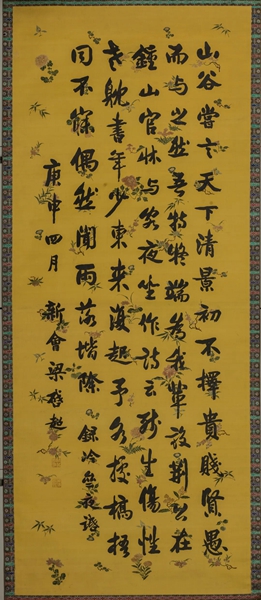 山谷嘗言天下清景初不擇貴賤賢愚
而与之然吾特疑端為我輩設荊公在
鍾山定林与客夜坐作詩云殘生傷性
老耽書年少東來復起予各據槁梧
同不寐偶然聞雨落堦除 錄冷齋夜話
庚申四月 新會梁啟超